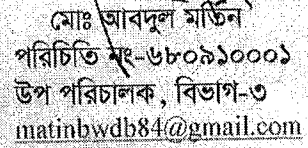 মোঃ আবদুল মতিন
পরিচিতি নং-৬৮০৯১০০০১
উপ পরিচালক, বিভাগ-৩
matinbwdb84@gmail.com